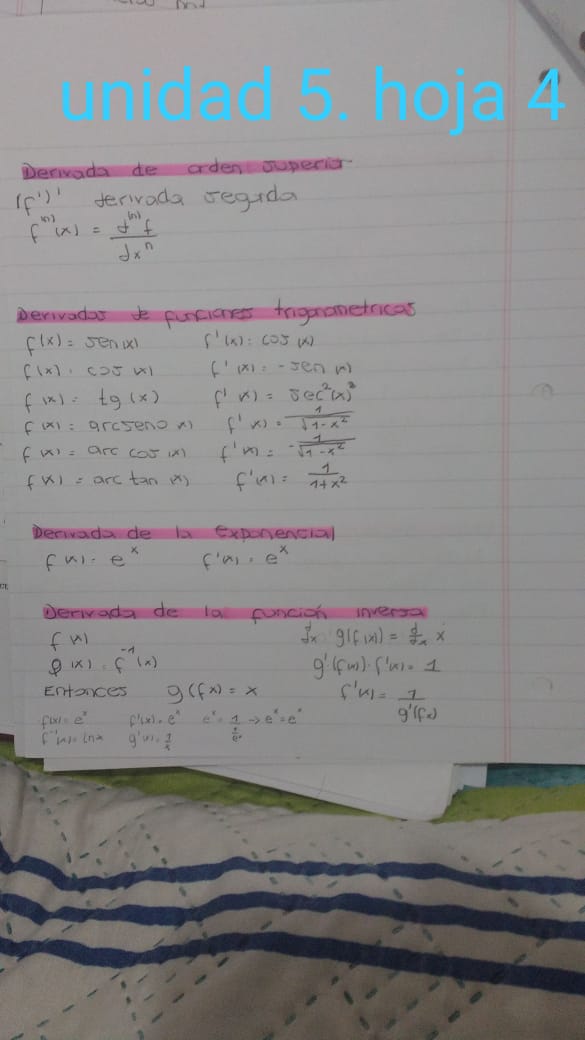 unidad 5. hoja 4
Derivada de orden superior
(f')' derivada segunda
f⁽ⁿ⁾(x) = d⁽ⁿ⁾f / dxⁿ
Derivadas de funciones trigonometricas
f(x) = sen(x) f'(x) = cos(x)
f(x) = cos(x) f'(x) = -sen(x)
f(x) = tg(x) f'(x) = sec²(x)
f(x) = arcseno(x) f'(x) = 1/√(1-x²)
f(x) = arc cos(x) f'(x) = -1/√(1-x²)
f(x) = arc tan(x) f'(x) = 1/(1+x²)
Derivada de la exponencial
f(x) = eˣ f'(x) = eˣ
Derivada de la función inversa
f(x) d/dx g(f(x)) = d/dx x
g(x) = f⁻¹(x) g'(f(x))·f'(x) = 1
Entonces g(f(x) = x f'(x) = 1/g'(f(x)
f(x) = eˣ f'(x) = eˣ eˣ = 1/(1/eˣ) → eˣ = eˣ
f⁻¹(x) = lnx g'(x) = 1/x